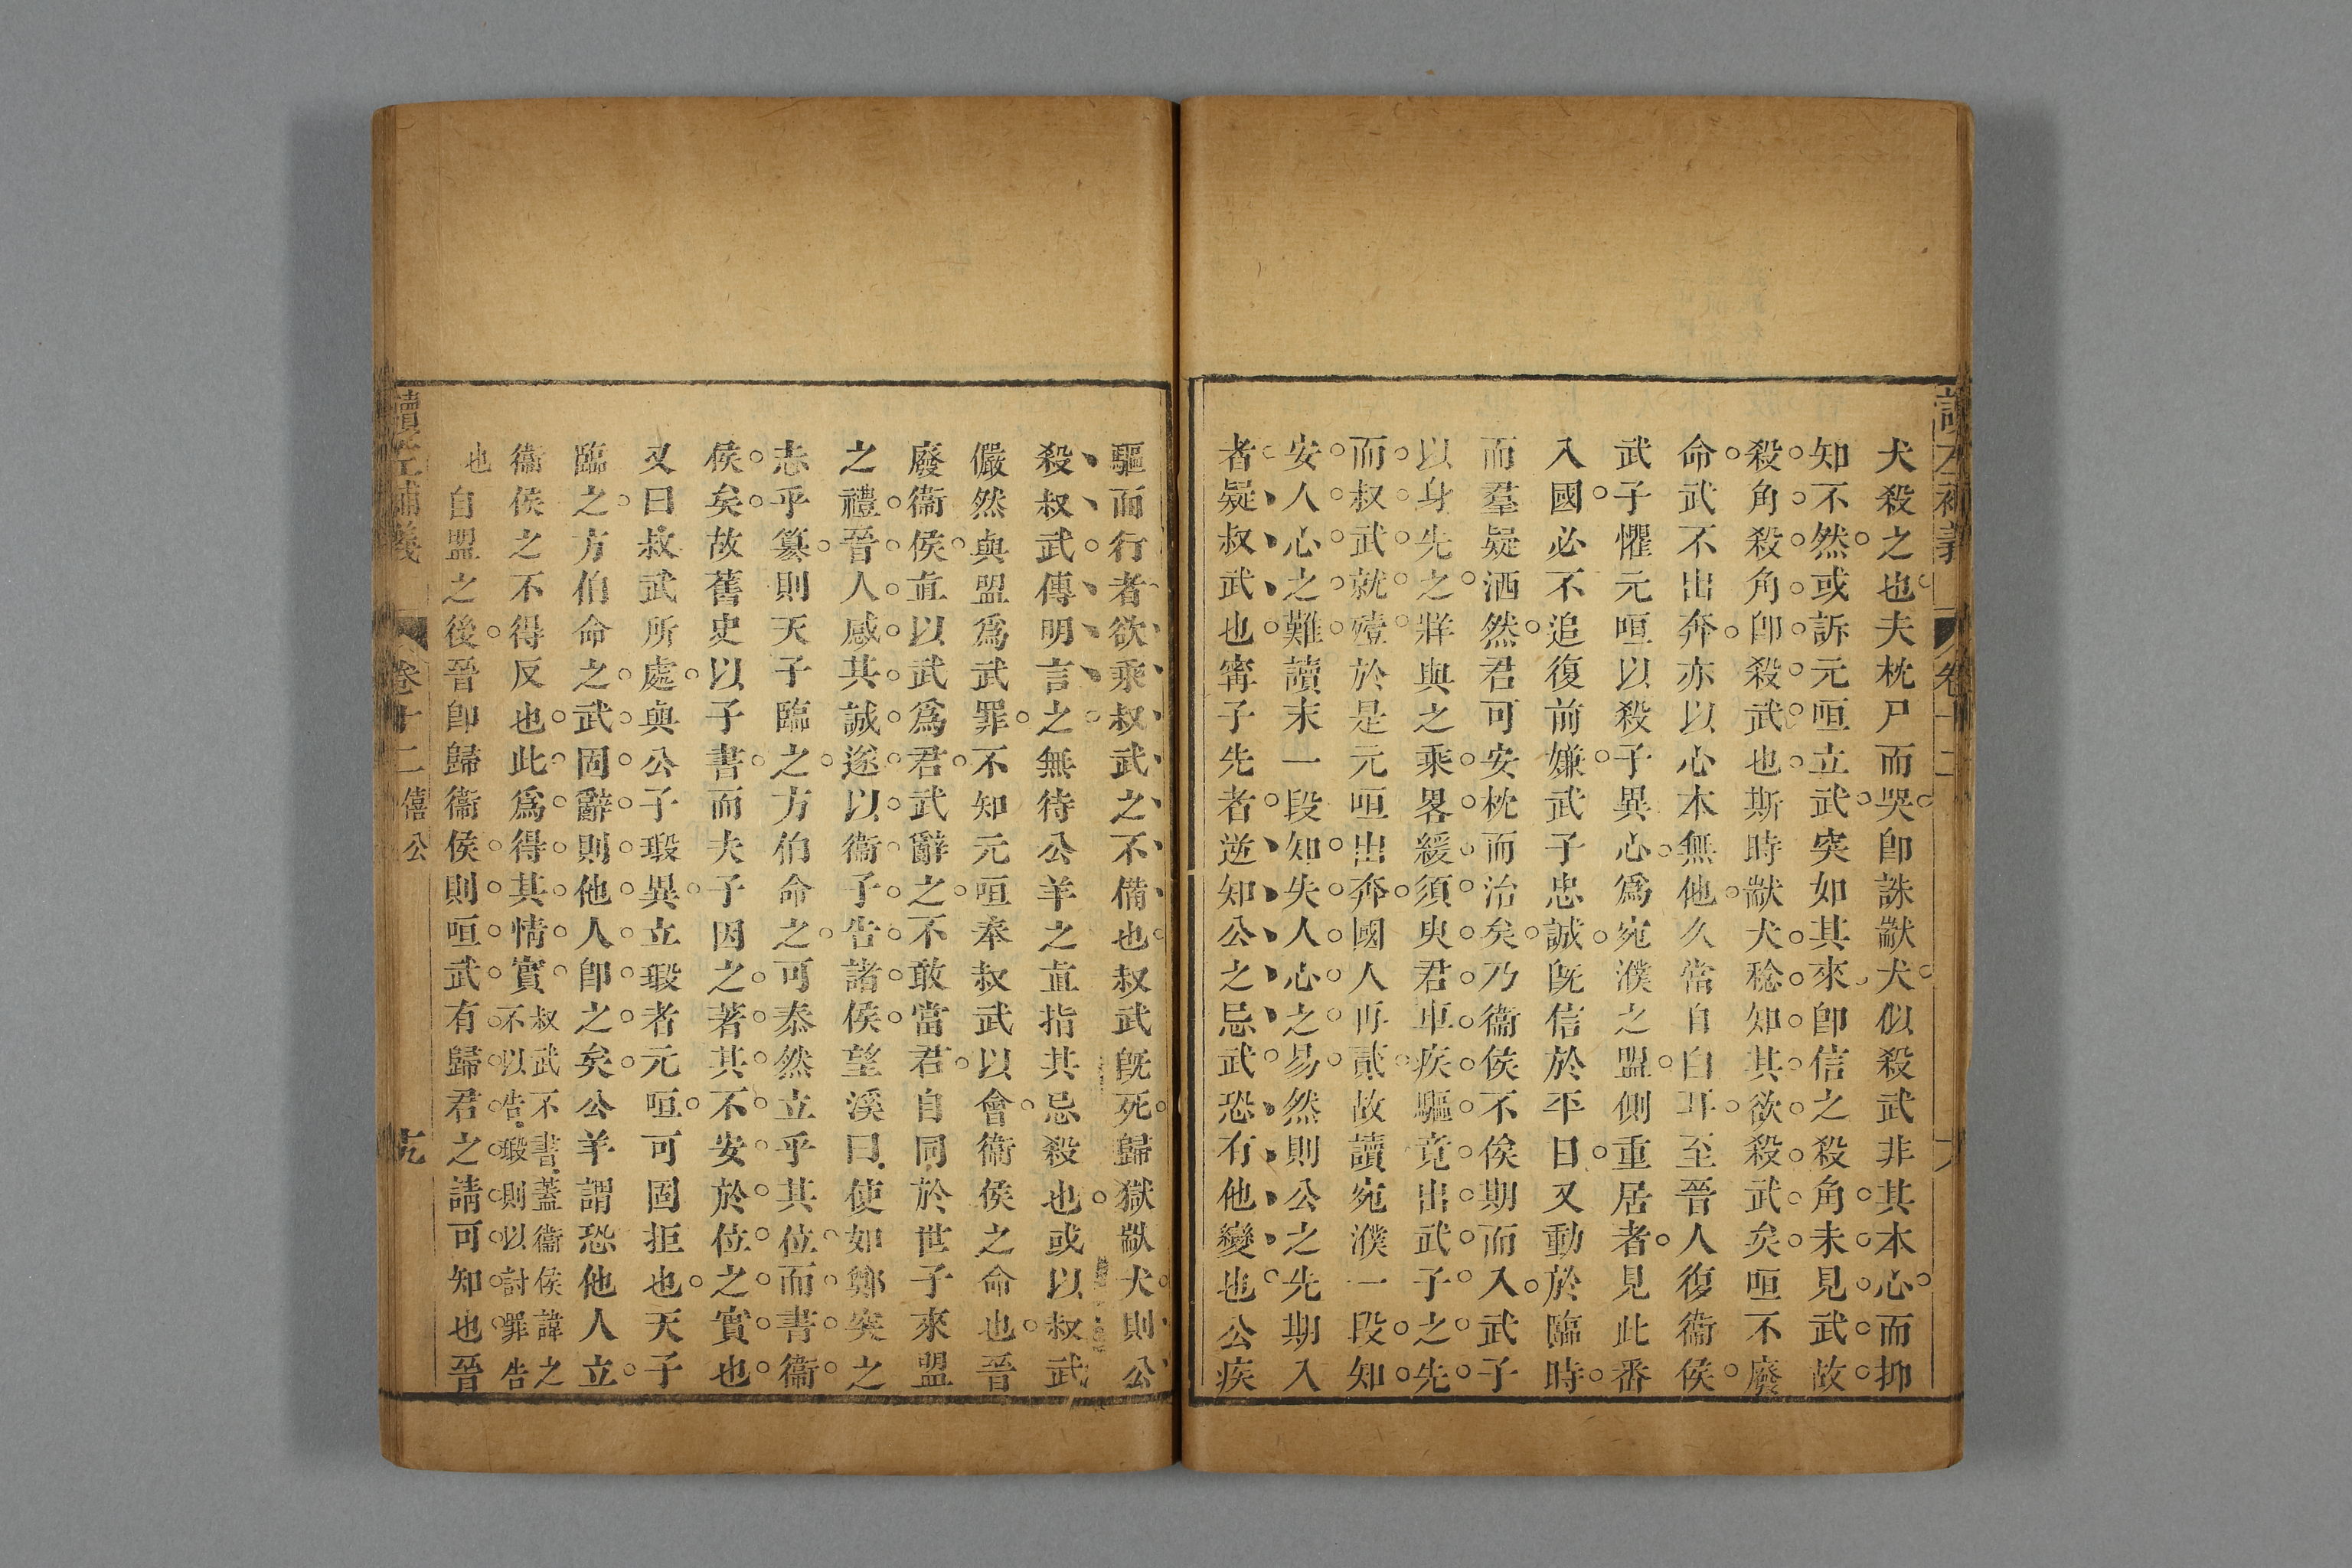 犬殺之也夫枕尸而哭卽誅歂犬似殺武非其本心而抑
知不然或訴元咺立武突如其來卽信之殺角未見武故
殺角殺角卽殺武也斯時歂犬稔知其欲殺武矣咺不廢
命武不出奔亦以心本無他久當自白耳至晉人復衞侯
武子懼元咺以殺子異心爲宛濮之盟側重居者見此番
入國必不追復前嫌武子忠誠旣信於平日又動於臨時
而羣疑洒然君可安枕而治矣乃衞侯不俟期而入武子
以身先之牂與之乘畧緩須臾君車疾驅竟出武子之先
而叔武就殪於是元咺出奔國人再貳故讀宛濮一段知
安人心之難讀末一段知失人心之易然則公之先期入
者疑叔武也甯子先者逆知公之忌武恐有他變也公疾
驅而行者欲乘叔武之不備也叔武旣死歸獄歂犬則公
殺叔武傳明言之無待公羊之直指其忌殺也或以叔武
儼然與盟爲武罪不知元咺奉叔武以會衞侯之命也晉
廢衞侯直以武爲君武辭之不敢當君自同於世子來盟
之禮晉人感其誠遂以衞子告諸侯望溪曰使如鄭突之
志乎簒則天子臨之方伯命之可泰然立乎其位而書衞
侯矣故舊史以子書而夫子因之著其不安於位之實也
又曰叔武所處與公子瑕異立瑕者元咺可固拒也天子
臨之方伯命之武固辭則他人卽之矣公羊謂恐他人立
衞侯之不得反也此爲得其情實叔武不書蓋衞侯諱之不以告瑕則以討罪告
也
自盟之後晉卽歸衞侯則咺武有歸君之請可知也晉
讀左補義 卷十二 僖公